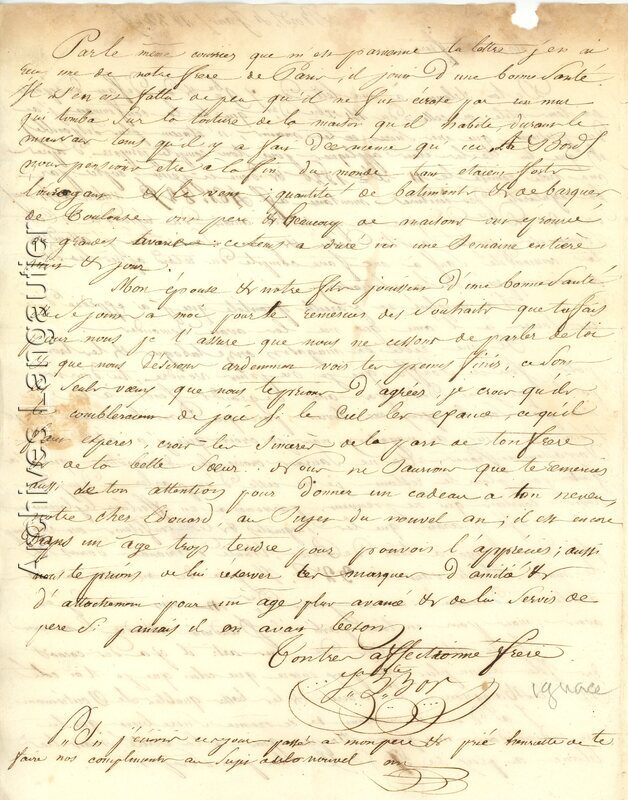 Par le meme courrier que m'est parvenue ta lettre j'en ai
reçu une de notre frere de Paris, il jouit d'une bonne Santé
Il s'en est fallu de peu qu'il ne fut écrasé par un mur
qui tomba sur la toiture de la maison qu'il habite, durant le
mauvais tems qu'il y a fait De meme qu'ici
nous pensions etre a la fin du monde tant etaient forts
l'ouragant & le vent; quantité de batiments & de barques
de Boulouse ont peri & beaucoup de maisons ont eprouvé
de grandes ce tems a duré ici une Semaine entière
nuit & jour.
Mon épouse & notre fils jouissent d'une bonne Santé
Se joint a moi pour te remercier des Souhaits que tu fais
pour nous je t'assure que nous ne cessons de parler de toi
que nous Désirons ardemment voir tes peines finies, ce sont
seuls vœux que nous te prions d'agréer, je crois qu'ils
combleraient de joie Si le Ciel les exauce, ce qu'il
esperer, crois les Sincères de la part de ton frere
& de ta belle Sœur.. Nous ne Saurions que te remercier
aussi de ton attention pour donner un cadeau a ton neveu,
notre cher Edouard au Sujet du nouvel an; il est encore
Dans un age trop tendre pour pouvoir l'apprécier; aussi
nous te prions de lui réserver tes marques d'amitié &
d'attachement pour un age plus avancé & de lui Servir de
pere Si jamais il en avait besoin.
Ton tres affectionné frere
ignace
P,, S,, J'ecrivis ces jours passés a mon pere & prié henriette de te
faire nos compliments au Sujet de la nouvel an
Archives Langautier